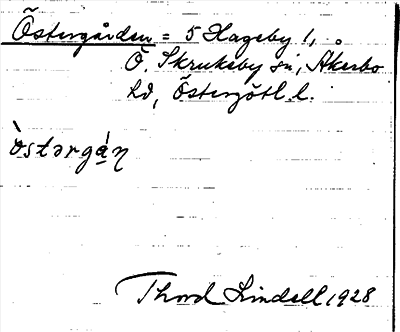 Östergården = 5 Hageby 1,
Ö. Skrukeby sn, Åkerbo
hd, Östergötl. l.
òstərgá̱ṇ
Thord Lindell 1928